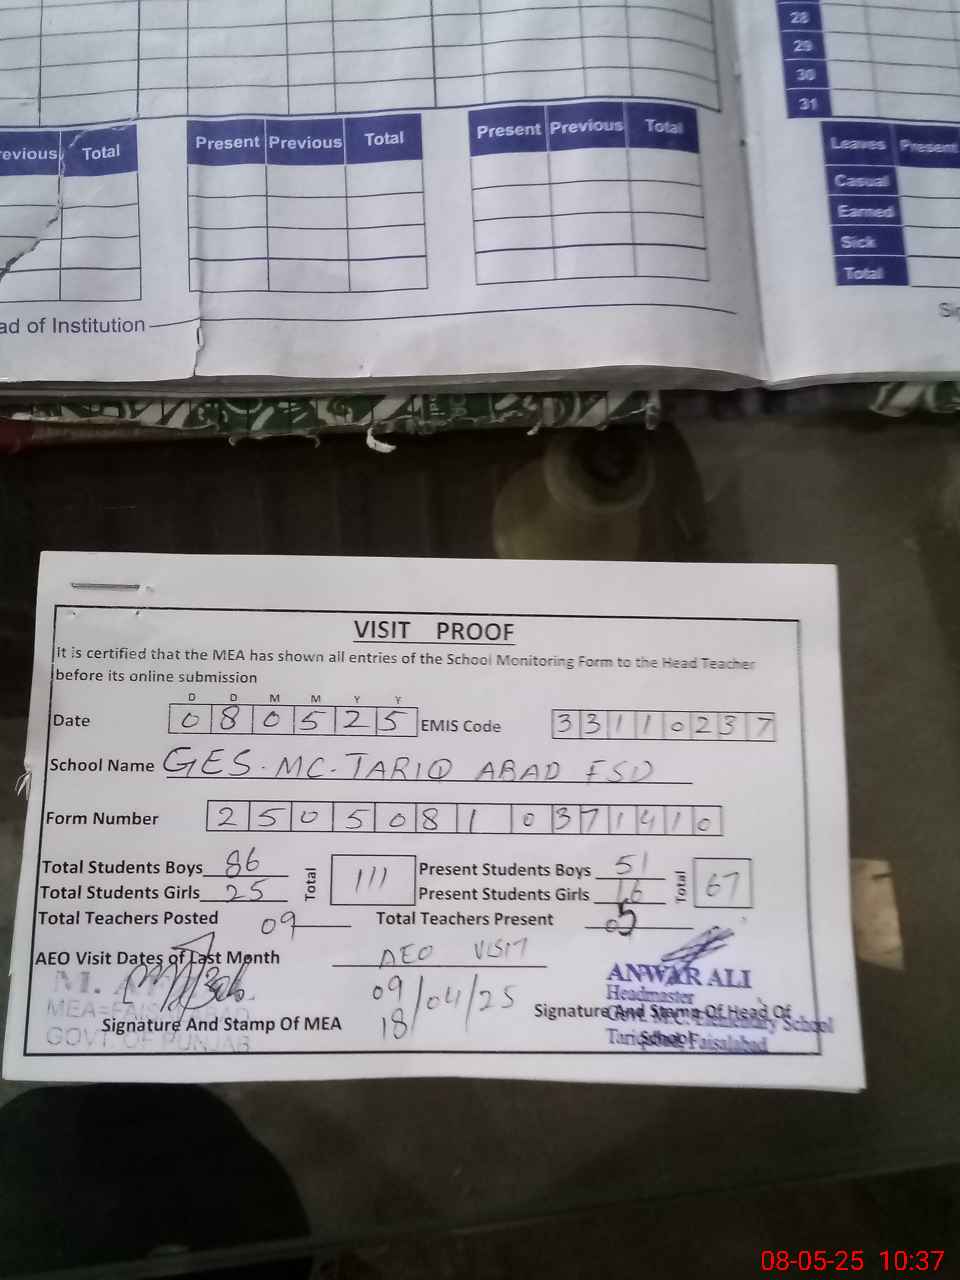 28
29
30
31
Total
Present Previous Total
Present Previous Total
Leaves Present
Casual
Earned
Sick
Total
of Institution
VISIT PROOF
It is certified that the MEA has shown all entries of the School Monitoring Form to the Head Teacher
before its online submission
D D M M Y Y
Date 0 8 0 5 2 5 EMIS Code 3 3 1 1 0 2 3 7
School Name GES. MC. TARIQ ABAD FSD
Form Number 2 5 0 5 0 8 1 0 3 7 1 4 1 0
Total Students Boys 86 Total 111 Present Students Boys 51 Total 67
Total Students Girls 25 Present Students Girls 16
Total Teachers Posted 09 Total Teachers Present 05
AEO Visit Dates of Last Month AEO VISIT
09/04/25
18
M.
MEA=FAISALABAD
GOVT. OF PUNJAB
Signature And Stamp Of MEA
ANWAR ALI
Headmaster
Signature And Stamp Of Head Of
School
Elementary School
Faisalabad
08-05-25 10:37